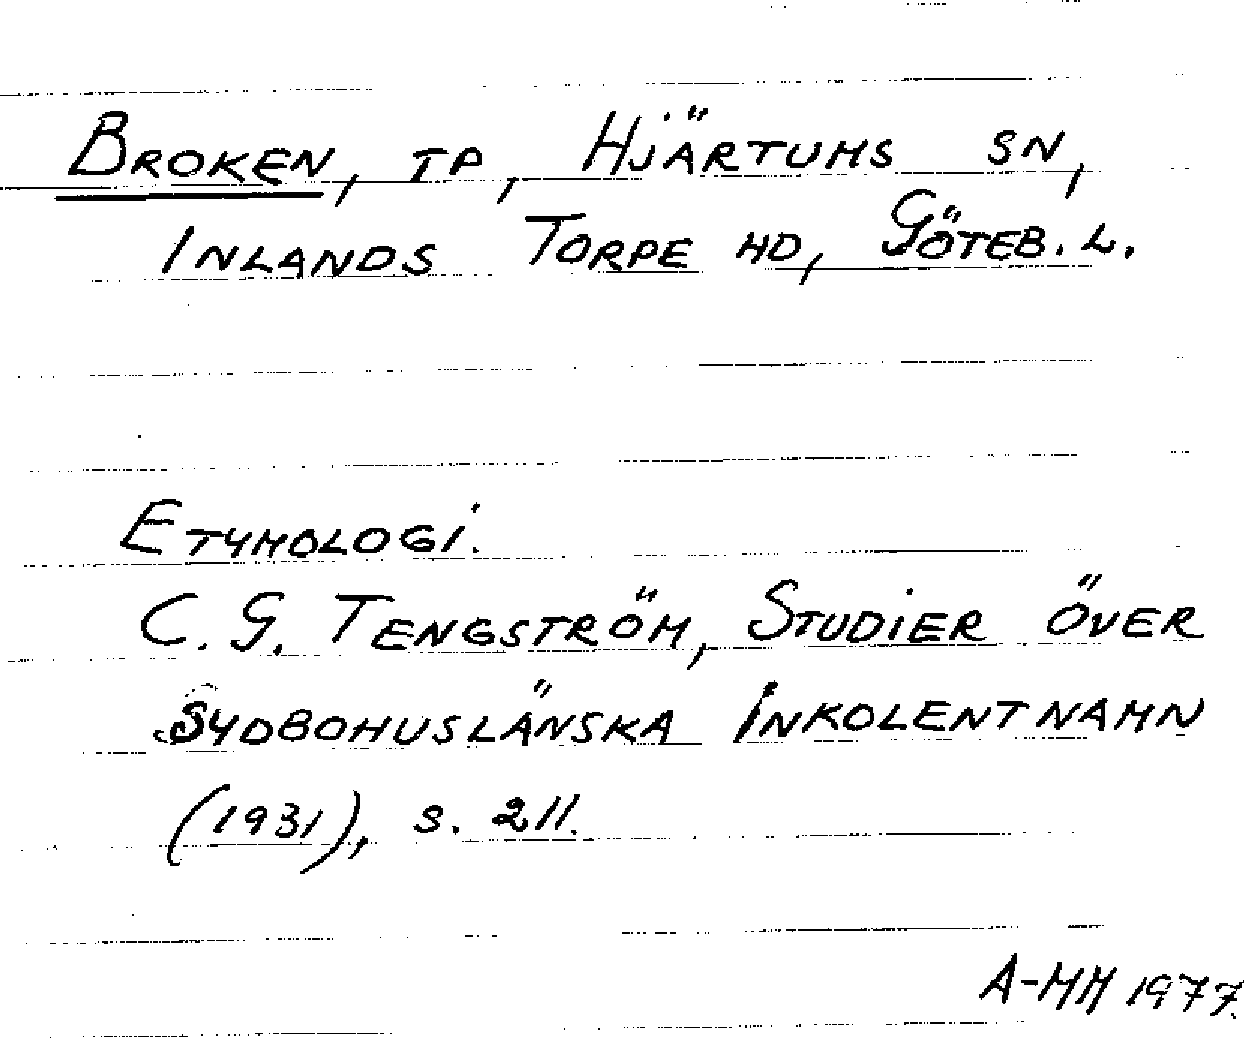 BROKEN, TP, HJÄRTUMS SN,
INLANDS TORPE HD, GÖTEB. L.
ETYMOLOGI.
C. G. TENGSTRÖM, STUDIER ÖVER
SYDBOHUSLÄNSKA INKOLENTNAMN
(1931), S. 211.
A-MM 1977.